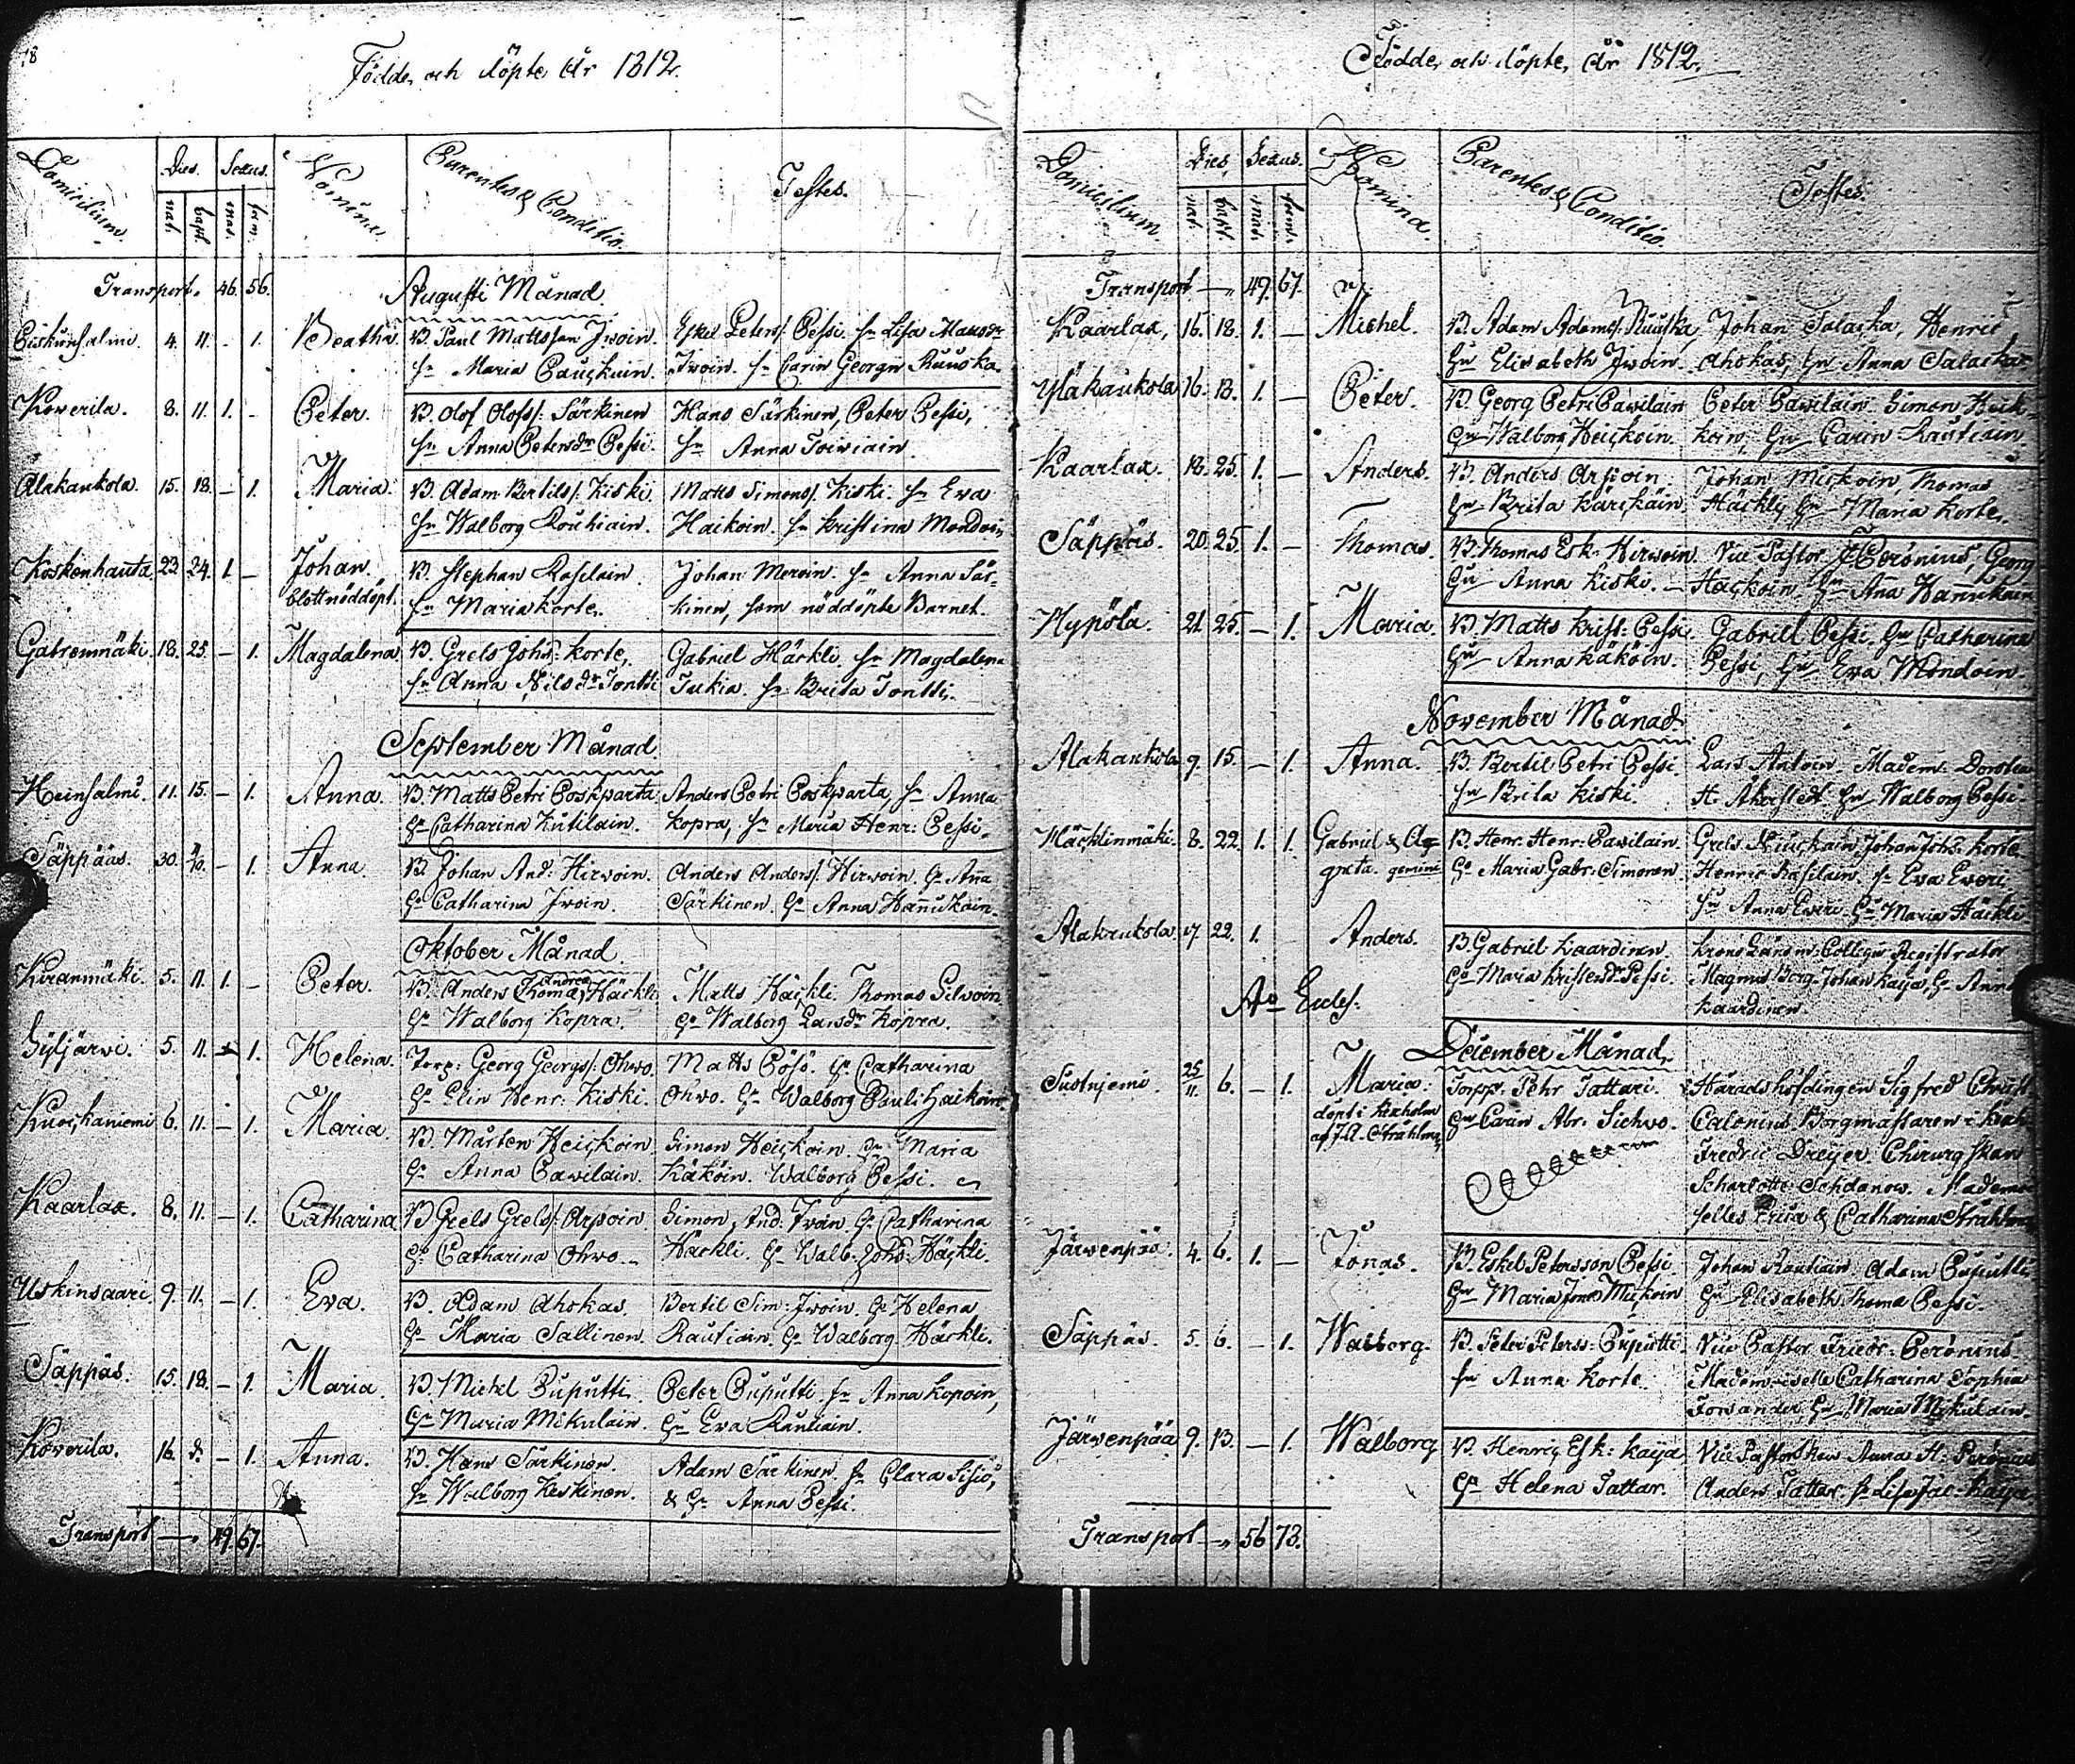 18
Födde och döpte år 1812.
Domicilium. Dies. nat. bapt. Sexus. mas. fem. Nomina. Parentes & Conditio. Testes.
Transport. 46. 56.
Augusti Månad.
4. 11. - 1. Beatha. B. Paul Mattsson Jwoin. Eskel Peters: Pessi. hu Lisa
hu Maria Jwoin. hu Carin Georgii Ruuska.
Kowerila. 8. 11. 1. - Peter. B. Olof Olofs: Särkinen Hans Särkinen, Peter Pessi,
hu Anna Petersdr Pessi. hu Anna Toiwiain.
Alakaukola. 15. 18. - 1. Maria. B. Adam Bertils: Kiski. Matts Simons: Kiski. hu Eva
hu Walborg Routiain. Haikoin. hu Kristina
Koskenhauta 23. 24. 1. - Johan. B. Stephan Rasilain. Johan Meroin. hu Anna Sär-
blott nöddöpt. hu Maria Korte. kinen, som nöddöpte Barnet.
18. 25. - 1. Magdalena B. Grels Johs: Korte, Gabriel Härkli. hu Magdalena
hu Anna Nilsdr Tontti Tukia. hu Brita Tontti.
September Månad
Heinsalmi. 11. 15. - 1. Anna. B. Matts Petri Poskparta Anders Petri Poskparta, hu Anna
hu Catharina Kutilain. Kopra, hu Maria Henr: Pessi.
Säppäas. 30. - 1. Anna. B. Johan And: Hirwoin. Anders Anders: Hirwoin. hu Anna
hu Catharina Jwoin. Särkinen. hu Anna Hannukain.
Oktober Månad.
Kiranmäki. 5. 11. 1. - Peter. B. Anders Thomas Häckli Matts Häckli. Thomas Silwoin
Andrea
hu Walborg Kopra. hu Walborg Larsdr Kopra.
Syljärwi. 5. 11. 1. Helena. Torp: Georg Georgs: Ohwo. Matts Pösö. hu Catharina
hu Elin Henr: Kiski. Ohwo. hu Walborg Pauli Haikoin.
6. 11. - 1. Maria. B. Mårten Heickoin Simon Heickoin. hu Maria
hu Anna Pawilain. Käköin. Walborg Pessi.
Kaarlax. 8. 11. - 1. Catharina B. Grels Grels: Arpoin. Simon And: Jvoin. hu Catharina
hu Catharina Ohwo. Häckli. hu Walb. Johs: Häckli.
Uskinsaari. 9. 11. - 1. Eva. B. Adam Ahokas. Bertil Sim: Jwoin. hu Helena
hu Maria Sallinen. Rautiain. hu Walborg Häckli.
Säppäs. 15. 18. - 1. Maria. B. Michel Puputti. Peter Puputti. hu Anna Kopoin,
hu Maria Mikulain. hu Eva Rautiain.
Kowerila. 16. d. - 1. Anna. B. Hans Särkinen. Adam Särkinen. hu Clara
hu Walborg Keskinen. & hu Anna Pessi.
Transport 49. 67.
Födde och döpte år 1812.
Domicilium. Dies. nat. bapt. Sexus. mas. fem. Nomina. Parentes & Conditio. Testes.
Transport 49. 67.
Kaarlax, 16. 18. 1. - Michel. B. Adam Adams: Ruuska, Johan Salaska, Henric
hu Elisabeth Jwoin. Ahokas, hu Anna Salaska
Yläkaukola 16. 18. 1. - Peter. B. Georg Petri Pawilain Peter Pawilain. Simon Heik-
hu Walborg Heickoin. koin, hu Carin Rautiain
Kaarlax. 18. 25. 1. - Anders. B. Anders Arpoin. Johan Mickoin, Thomas
hu Brita Kärckäin. Häckly hu Maria Korte.
Säppäs. 20. 25. 1. - Thomas. B. Thomas Esk: Hirwoin. Vice Pastor Peronius, Georg
hu Anna Kiski. Hackoin. hu Anna Hannukain
Hypölä. 21. 25. - 1. Maria. B. Matts Krist: Pessi. Gabriel Pessi. hu Catharina
hu Anna Käköin. Pessi, hu Eva Mondoin.
November Månad.
Alakaukola 9. 15. - 1. Anna. B. Bertil Petri Pessi. Lars Antoin. Madem: Dorothea
hu Brita Kiski. H. Åkerstedt hu Walborg Pessi.
Häcklinmäki. 8. 22. 1. 1. Gabriel & Ag- B. Henr: Henr: Pawilain. Grels Johan Johs: Korte.
greta. gemini hu Maria Gabr: Simonen. Henric Rasilain. hu Eva Eweri
hu Anna Eweri. hu Maria Häckli
Alakaukola. 17. 22. 1. Anders. B. Gabriel Kaardinen. Krons Länsm: Collegii Registrator
hu Maria Pessi. Magnus Borg. Johan Kaija, hu Anna
Kaardinen.
Ao Eccles.
December Månad.
25/11. 6. - 1. Maria. Torpp: Pehr Tattari. Häradshöfdingen Sigfred Christ:
döpt i Kexholm hu Carin Abr. Sichwo. Calonius Borgmästaren i Kexh:
af J.A. Strahlman Fredric Dreyer. Chirurg:skan
Scharlotte Schdanow. Mademoi-
selles Erica & Catharina Strahlman
Järwenpää. 4. 6. 1. - Jonas. B. Eskel Petersson Pessi. Johan Rautiain Adam Puputti
hu Maria Mickoin hu Elisabeth Thoma Pessi.
Säppäs. 5. 6. - 1. Walborg. B. Peter Peterss: Puputti. Vice Pastor Friedr: Peronius
hu Anna Korte. Mademoiselle Catharina Sophia
Forsander, hu Maria Mikulain.
Järwenpää 9. 13. - 1. Walborg B. Henric Esk: Kaija Vice Pastorskan Anna H: Peronius
hu Helena Tattar. Anders Tattar. hu Lisa Jac: Kaija
Transport 56 73.